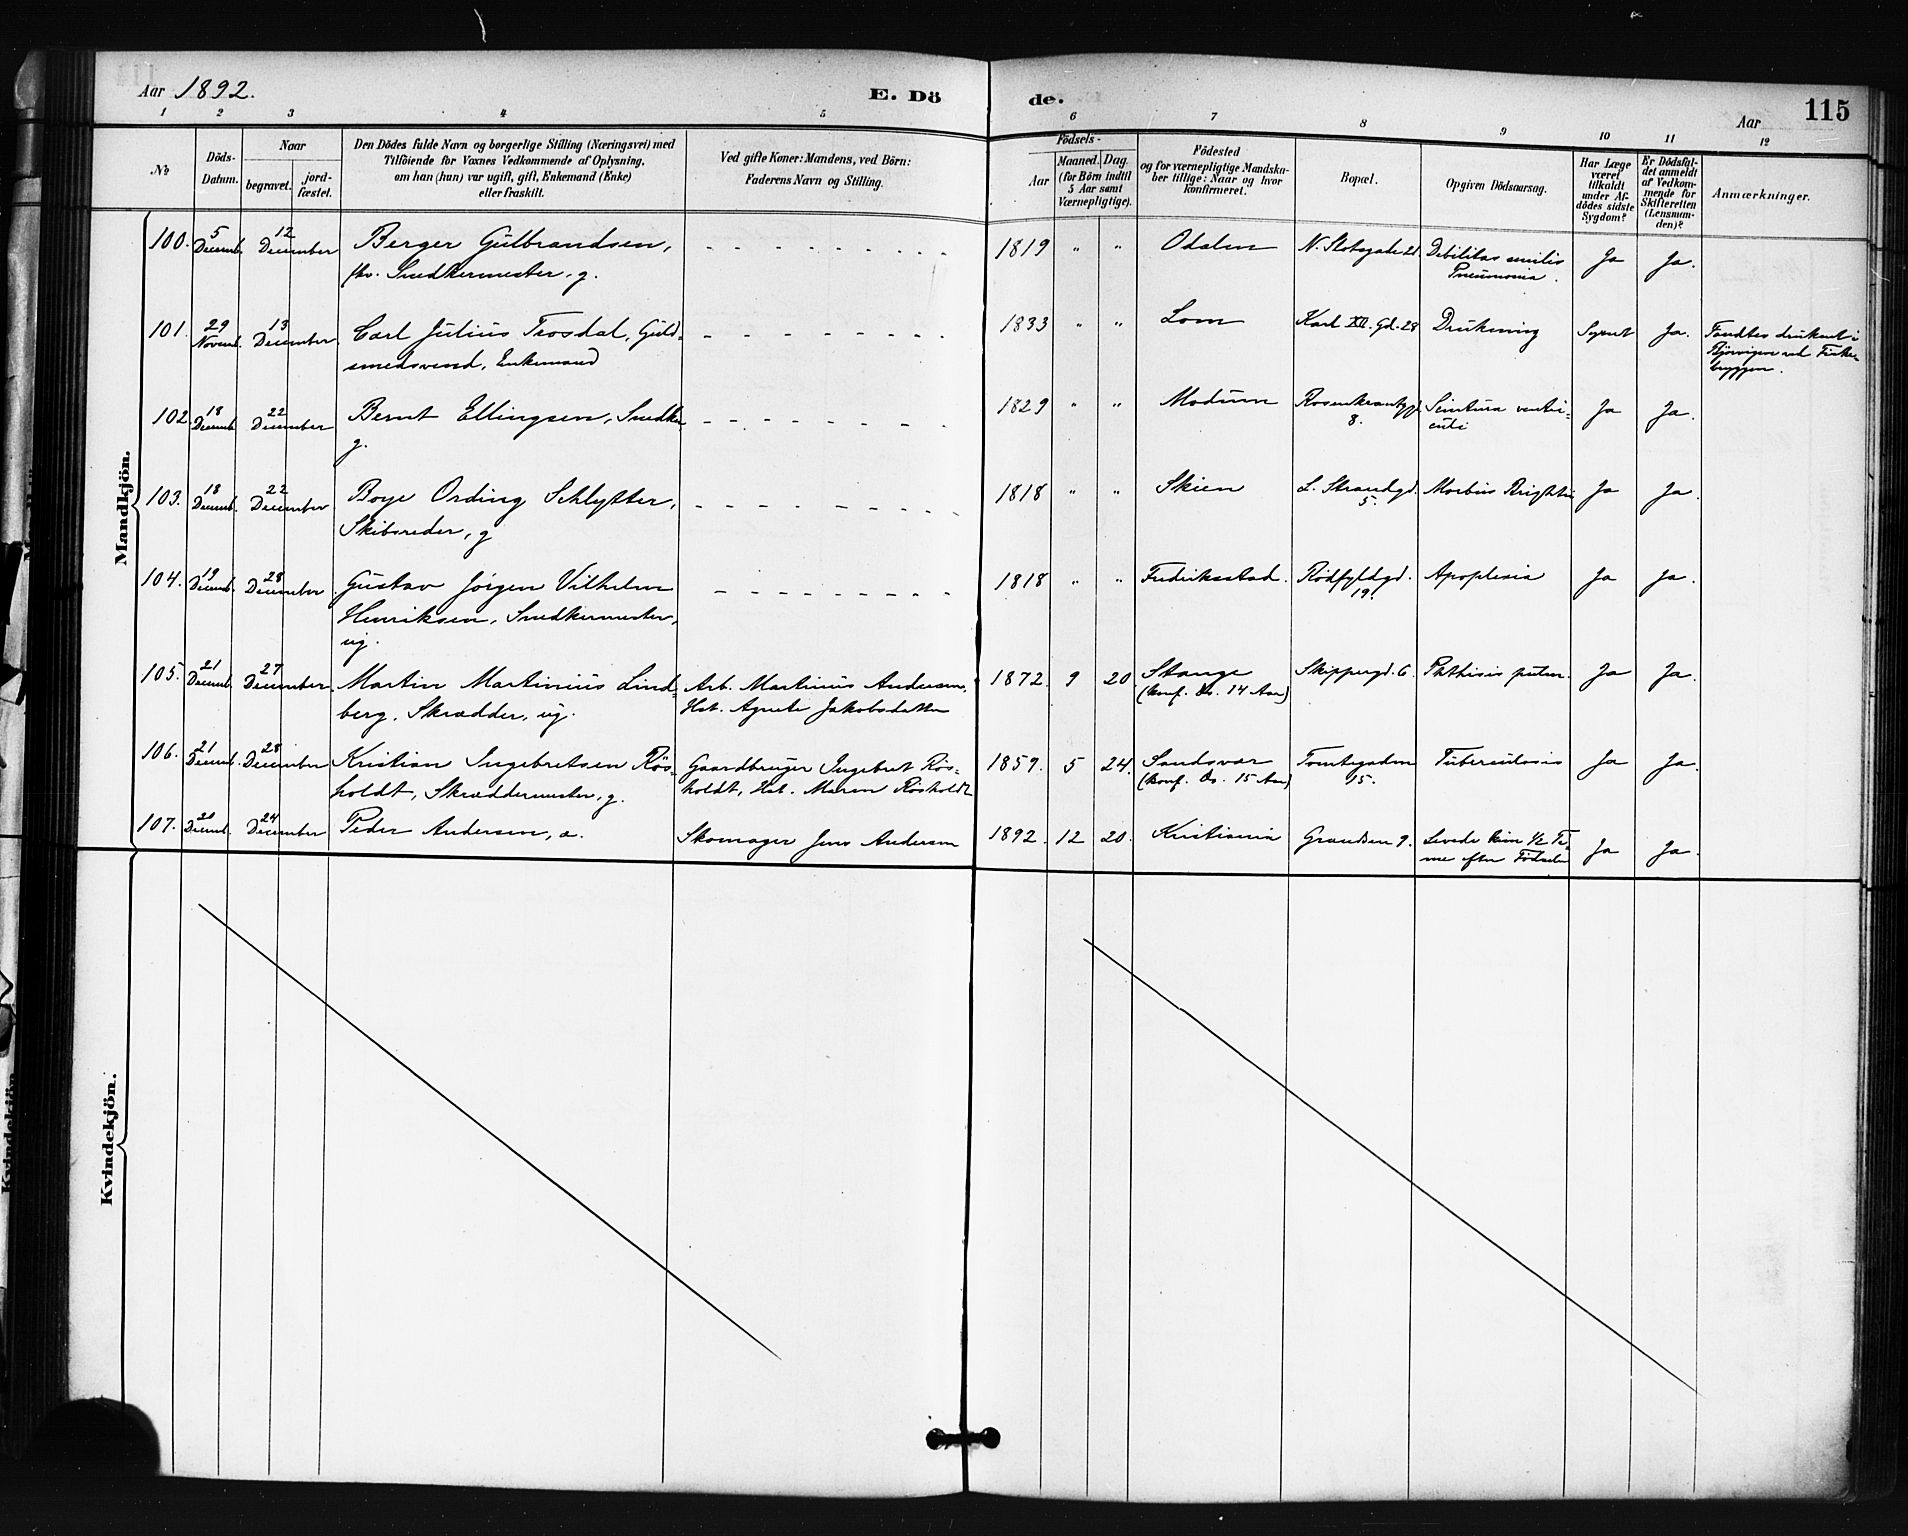 Aar 1892.
E. Dö
de.
Aar
115
1 2 3 4 5 6 7 8 9 10 11 12
No
Döds-
Datum.
Naar
begravet.
jord-
fæstet.
Den Dödes fulde Navn og borgerlige Stilling (Næringsvei) med
Tilföiende for Voxnes Vedkommende af Oplysning,
om han (hun) var ugift, gift, Enkemand (Enke)
eller fraskilt.
Ved gifte Koner: Mandens, ved Börn:
Faderens Navn og Stilling.
Födsels-
Aar
Maaned. Dag.
(for Börn indtil
5 Aar samt
Værnepligtige).
Födested
og for værnepligtige Mandska-
ber tillige: Naar og hvor
konfirmeret.
Bopæl.
Opgiven Dödsaarsag.
Har Læge
været
tilkaldt
under Af-
dödes sidste
Sygdom?
Er Dödsfal-
det anmeldt
af Vedkom-
mende for
Skifteretten
(Lensman-
den)?
Anmærkninger.
Mandkjön.
100. 5 Decemb. 12 December Berger Gulbrandsen, 1819 " " Odalen N. Slotsgade 21 Debilitas senilis Ja Ja.
fhv. Snedkermester, g. Pneumonia.
101. 29 Novemb. 13 December Carl Julius Trosdal, Guld- 1833 " " Lom Karl XII. Gd. 28 Drukning Synet Ja. Fandtes druknet i
smedsvend, Enkemand Bjørvigen ved Fiske-
bryggen.
102. 18 Decemb. 22 December Bernt Ellingsen, Snedker 1829 " " Modum Rosenkrantzgd. Ja Ja.
g. 8.
103. 18 Decemb. 22 December Boye Ording Schlytter, 1818 " " Skien L. Strandgd. Morbus Brightii Ja Ja.
Skibsreder, g 5.
104. 19 Decemb. 28 December Gustav Jörgen Vilhelm 1818 " " Fredriksstad. Rödfyldgd. Apoplexia Ja Ja.
Henriksen, Snedkermester, 19.
ug.
105. 21 Decemb. 27 December Martin Martinius Lind- Arb. Martinus Andersen, 1872. 9 20. Stange Skippergd. 6. Phthisis pulm. Ja Ja.
berg, Skrædder, ug. Hst. Agnete Jakobsdatter (konf. Do. 14 Aar)
106. 21 Decemb. 28 December Kristian Ingebretsen Rös- Gaardbruger Ingebret Rös- 1859. 5 24. Sandsvær Tomtegaden Tuberculosis Ja Ja.
holdt, Skræddermester, g. holdt, Hst. Maren Rösholdt (konf. Do. 15 Aar) 15.
107. 20 Decemb. 24 December Peder Andersen, æ. Skomager Jens Andersen 1892. 12 20. Kristiania Grændsen 9. Levede kun 1/2 Ti- Ja Ja.
me efter Fødselen
Kvindekjön.